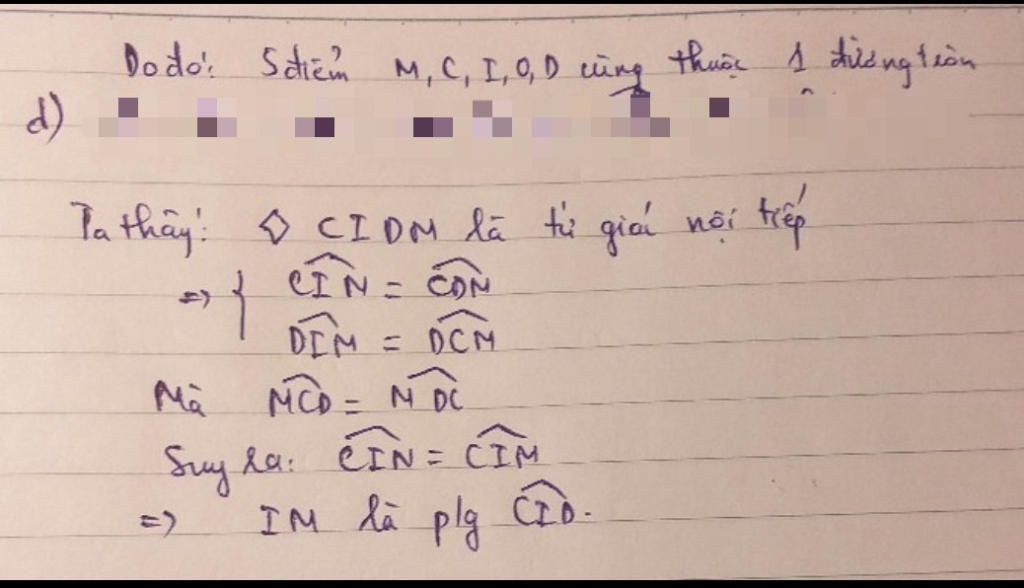 Do đó: 5 điểm M, C, I, O, D cùng thuộc 1 đường tròn
d)
Ta thấy: ◊ CIDM là tứ giác nội tiếp
=> { CIN = CDN
DIM = DCM
Mà MCD = MDC
Suy ra: CIN = CIM
=> IM là p/g CID.